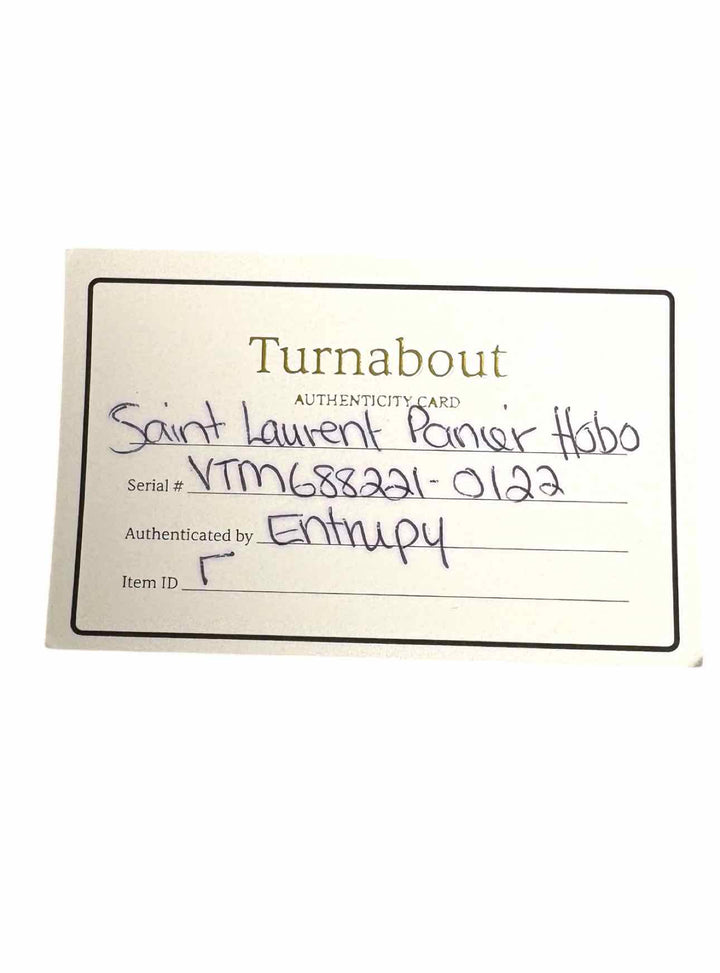 Turnabout
AUTHENTICITY CARD
Saint Laurent Panier Hobo
Serial # VTM688221-0122
Authenticated by Entrupy
Item ID